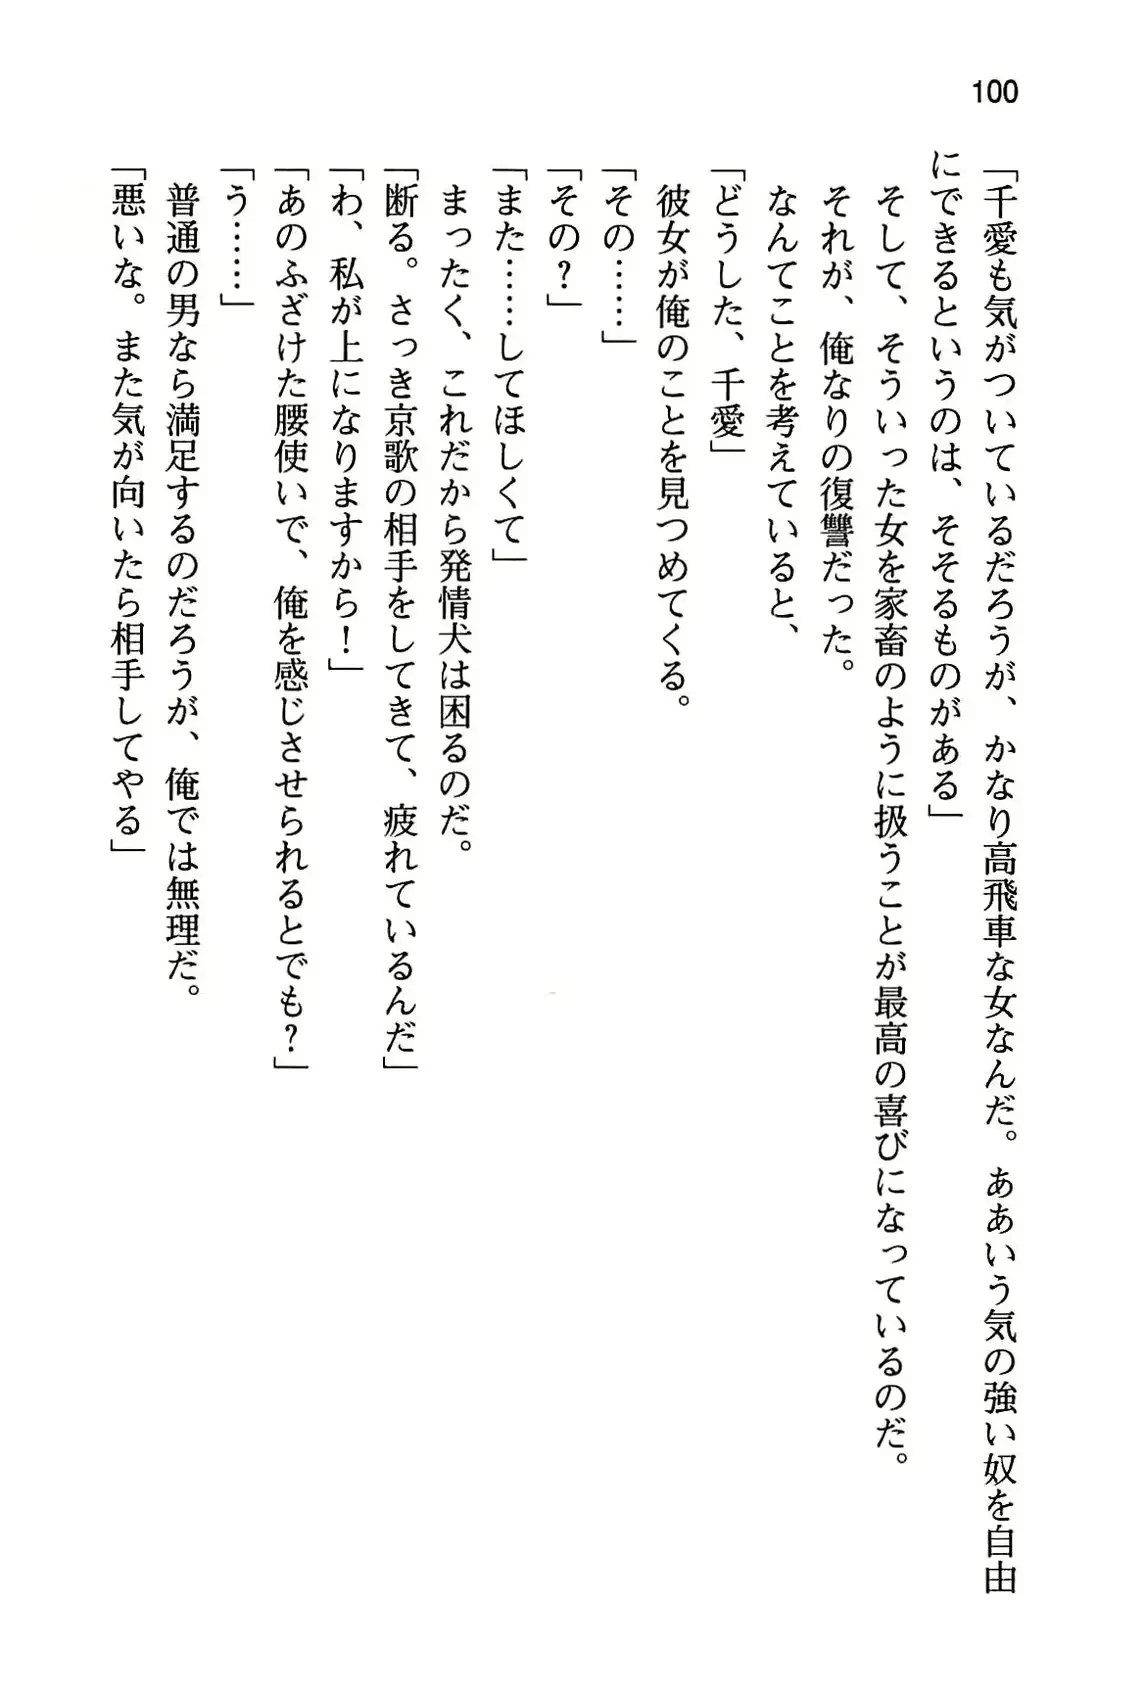 100
「千愛も気がついているだろうが、かなり高飛車な女なんだ。ああいう気の強い奴を自由
にできるというのは、そそるものがある」
そして、そういった女を家畜のように扱うことが最高の喜びになっているのだ。
それが、俺なりの復讐だった。
なんてことを考えていると、
「どうした、千愛」
彼女が俺のことを見つめてくる。
「その……」
「その？」
「また……してほしくて」
まったく、これだから発情犬は困るのだ。
「断る。さっき京歌の相手をしてきて、疲れているんだ」
「わ、私が上になりますから！」
「あのふざけた腰使いで、俺を感じさせられるとでも？」
「う……」
普通の男なら満足するのだろうが、俺では無理だ。
「悪いな。また気が向いたら相手してやる」